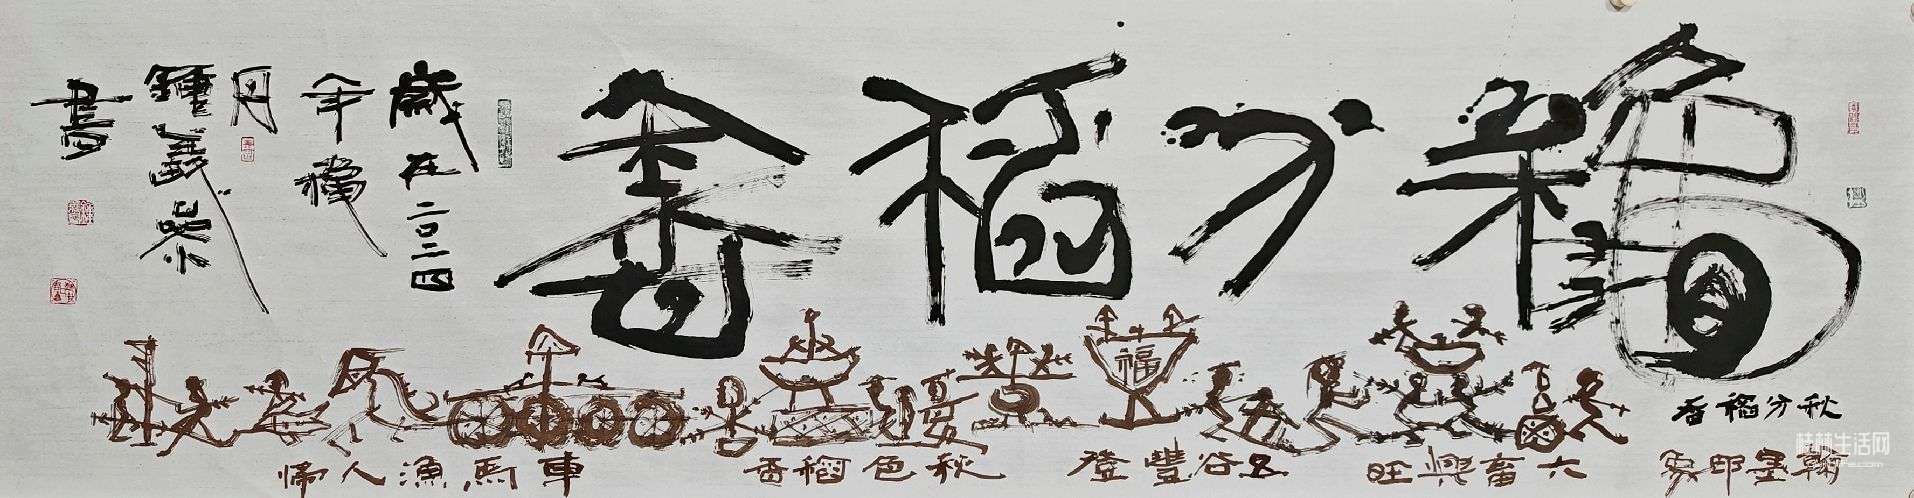 分稻香
秋分稻香
翰墨印象
六畜興旺
五谷豐登
福
秋色稻香
車馬漁人歸
歲在二〇二四
年
月
鍾義榮
書
桂林生活网